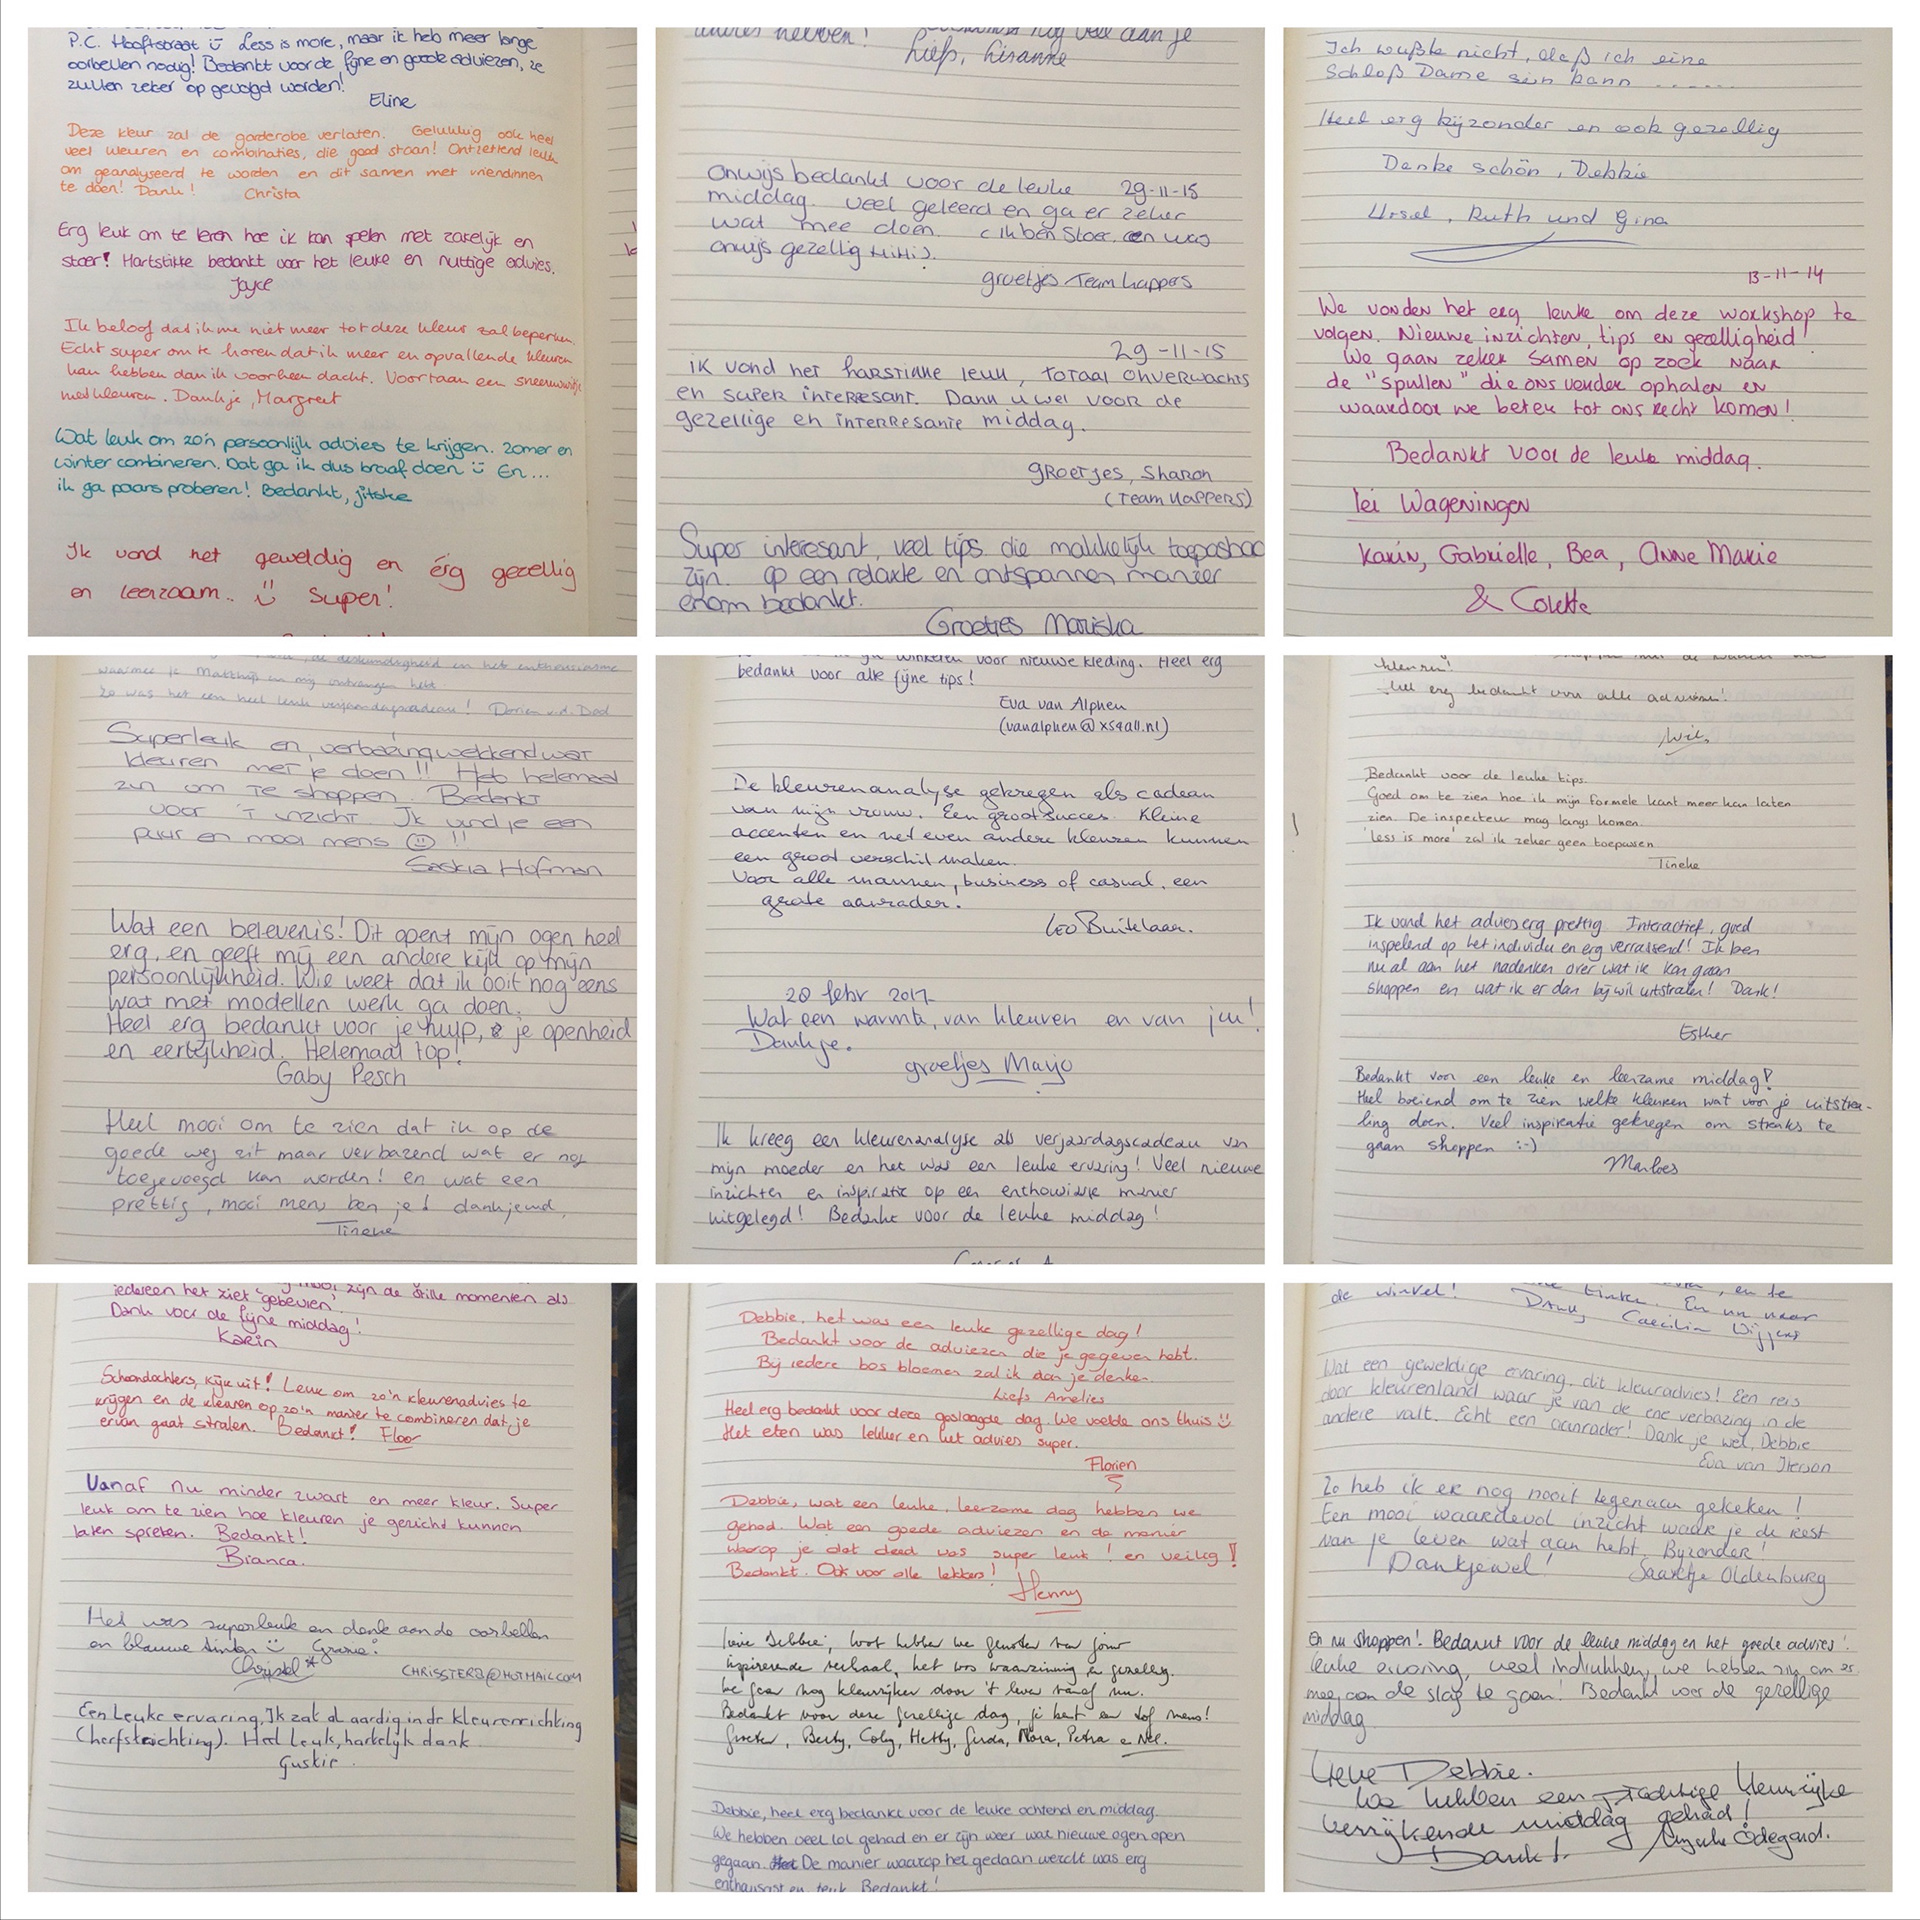 P.C. Hooftstraat Less is more, maar ik heb meer lange
oorbellen nodig! Bedankt voor de fijne en goede adviezen, ze
zullen zeker op gevolgd worden!
Eline
Deze kleur zal de garderobe verlaten. Gelukkig ook heel
veel kleuren en combinaties, die goed staan! Ontzettend leuk
om geanalyseerd te worden en dit samen met vriendinnen
te doen! Dank! Christa
Erg leuk om te leren hoe ik kan spelen met zakelijk en
stoer! Hartstikke bedankt voor het leuke en nuttige advies.
Joyce
Ik beloof dat ik me niet meer tot deze kleur zal beperken.
Echt super om te horen dat ik meer en opvallende kleuren
kan hebben dan ik voorheen dacht. Voortaan een sneeuwwitje
met kleuren. Dankje, Margreet
Wat leuk om zo'n persoonlijk advies te krijgen. Zomer en
winter combineren. Dat ga ik dus braaf doen En...
ik ga paars proberen! Bedankt, jitske
Ik vond het geweldig en érg gezellig
en leerzaam.. Super!
liefs, Lisanne
onwijs bedankt voor de leuke 29-11-15
middag. veel geleerd en ga er zeker
wat mee doen. (ik ben Stoer en was
onwijs gezellig HiHi).
groetjes Team Kappers
29-11-15
ik vond het harstikke leuk, totaal onverwachts
en super interesant. Dank u wel voor de
gezellige en interresante middag.
groetjes, Sharon
(Team Kappers)
Super interesant, veel tips die makkelijk toepasbaar
zijn. op een relaxte en ontspannen manier
enorm bedankt.
Groetjes Mariska
Ich wußte nicht, daß ich eine
Schloß Dame sein kann .......
Heel erg bijzonder en ook gezellig
Danke schön, Debbie
Ursel, Ruth und Gina
13-11-14
We vonden het erg leuke om deze workshop te
volgen. Nieuwe inzichten, tips en gezelligheid!
We gaan zeker samen op zoek naar
de "spullen" die ons verder ophalen en
waardoor we beter tot ons recht komen!
Bedankt voor de leuke middag.
lei Wageningen
Karin, Gabrielle, Bea, Anne Marie
& Colette
de deskundigheid en het enthousiasme
waarmee je Matthijs en mij ontvangen hebt.
Zo was het een heel leuk verjaardagscadeau! Dorien v.d. Dod
Superleuk en verbazingwekkend wat
kleuren met je doen!! Heb helemaal
zin om te shoppen. Bedankt
voor 't inzicht. Ik vind je een
puur en mooi mens !!
Saskia Hofman
Wat een belevenis! Dit opent mijn ogen heel
erg, en geeft mij een andere kijk op mijn
persoonlijkheid. Wie weet dat ik ooit nog eens
wat met modellen werk ga doen.
Heel erg bedankt voor je hulp, & je openheid
en eerlijkheid. Helemaal top!
Gaby Pesch
Heel mooi om te zien dat ik op de
goede weg zit maar verbazend wat er nog
toegevoegd kan worden! en wat een
prettig, mooi mens ben je! dankjewel,
Tineke
winkelen voor nieuwe kleding. Heel erg
bedankt voor alle fijne tips!
Eva van Alphen
(vanalphen@xs4all.nl)
De kleurenanalyse gekregen als cadeau
van mijn vrouw. Een groot succes. Kleine
accenten en net even andere kleuren kunnen
een groot verschil maken.
Voor alle mannen, business of casual, een
grote aanrader.
Leo Buitelaar.
20 febr 2017
Wat een warmte, van kleuren en van jou!
Dankje.
groetjes Marjo
Ik kreeg een kleurenanalyse als verjaardagscadeau van
mijn moeder en het was een leuke ervaring! Veel nieuwe
inzichten en inspiratie op een enthousiaste manier
uitgelegd! Bedankt voor de leuke middag!
kleuren!
Heel erg bedankt voor alle adviezen!
Wil
Bedankt voor de leuke tips.
Goed om te zien hoe ik mijn formele kant meer kan laten
zien. De inspecteur mag langs komen.
'Less is more' zal ik zeker geen toepassen
Tineke
Ik vond het advies erg prettig. Interactief, goed
inspelend op het individu en erg verrassend! Ik ben
nu al aan het nadenken over wat ik kan gaan
shoppen en wat ik er dan bij wil uitstralen! Dank!
Esther
Bedankt voor een leuke en leerzame middag!
Heel boeiend om te zien welke kleuren wat voor je uitstra-
ling doen. Veel inspiratie gekregen om straks te
gaan shoppen :-)
Marloes
zijn de stille momenten als
iedereen het ziet 'gebeuren'.
Dank voor de fijne middag!
Karin
Schoondochters, kijk uit! Leuk om zo'n kleurenadvies te
krijgen en de kleuren op zo'n manier te combineren dat je
ervan gaat stralen. Bedankt! Floor
Vanaf nu minder zwart en meer kleur. Super
leuk om te zien hoe kleuren je gezicht kunnen
laten spreken. Bedankt!
Bianca.
Het was superleuk en denk aan de oorbellen
en blauwe tinten Grazie!
Christel* CHRISSTER3@HOTMAIL.COM
Een leuke ervaring, Ik zat al aardig in de kleurenrichting
(herfstrichting). Heel leuk, hartelijk dank
Guskir.
Debbie, het was een leuke gezellige dag!
Bedankt voor de adviezen die je gegeven hebt.
Bij iedere bos bloemen zal ik aan je denken.
Liefs Amelies
Heel erg bedankt voor deze geslaagde dag. We voelde ons thuis
Het eten was lekker en het advies super.
Florien
Debbie, wat een leuke, leerzame dag hebben we
gehad. Wat een goede adviezen en de manier
waarop je dat deed was super leuk! en veilig!
Bedankt. Ook voor alle lekkers!
Henny
Lieve Debbie, wat hebben we genoten van jouw
inspirerende verhaal, het was waanzinnig en gezellig.
We gaan nog kleurrijker door 't leven vanaf nu.
Bedankt voor deze gezellige dag, je bent een tof mens!
Groeten, Berty, Coby, Hetty, Gerda, Nora, Petra e Nel.
Debbie, heel erg bedankt voor de leuke ochtend en middag
We hebben veel lol gehad en er zijn weer wat nieuwe ogen open
gegaan. De manier waarop het gedaan werdt was erg
enthousiast en leuk. Bedankt!
de winkel! tinten. En nu naar
Dank, Caecilia Wijgens
Wat een geweldige ervaring, dit kleuradvies! Een reis
door kleurenland waar je van de ene verbazing in de
andere valt. Echt een aanrader! Dank je wel, Debbie
Eva van Iterson
Zo heb ik er nog nooit tegenaan gekeken!
Een mooi waardevol inzicht waar je de rest
van je leven wat aan hebt. Bijzonder!
Dankjewel! Saartje Oldenburg
En nu shoppen! Bedankt voor de leuke middag en het goede advies!
leuke ervaring, veel indrukken, we hebben zin om er
mee aan de slag te gaan! Bedankt voor de gezellige
middag
Lieve Debbie.
We hebben een prachtige kleurrijke
verrijkende middag gehad!
Dank! Odegard.